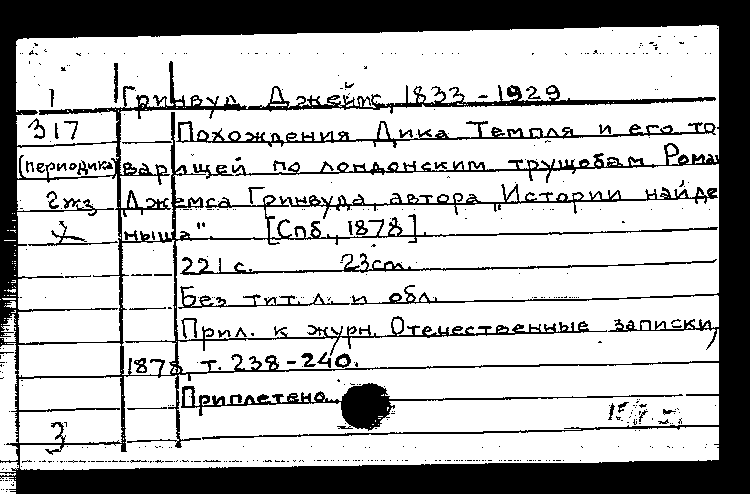 1 Гринвуд Джеймс, 1833-1929.
317 Похождения Дика Темпля и его то-
(периодика) варищей по лондонским трущобам. Рома
2жз Джемса Гринвуда, автора "Истории найде
ныша". [Спб., 1878].
221 с. 23 см.
Без тит. л. и обл.
Прил. к журн. Отечественные записки,
1878, т. 238-240.
Приплетено...
3